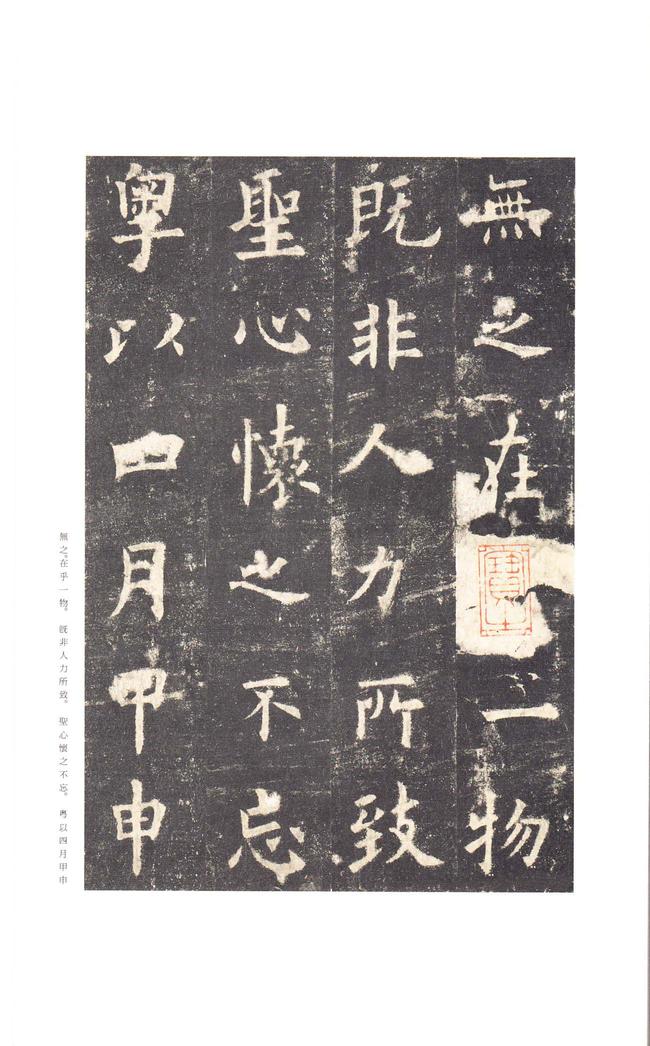 無之在一物
既非人力所致
聖心懷之不忘
粵以四月甲申
無之。在乎一物。 既非人力所致。 聖心懷之不忘。 粤以四月甲申